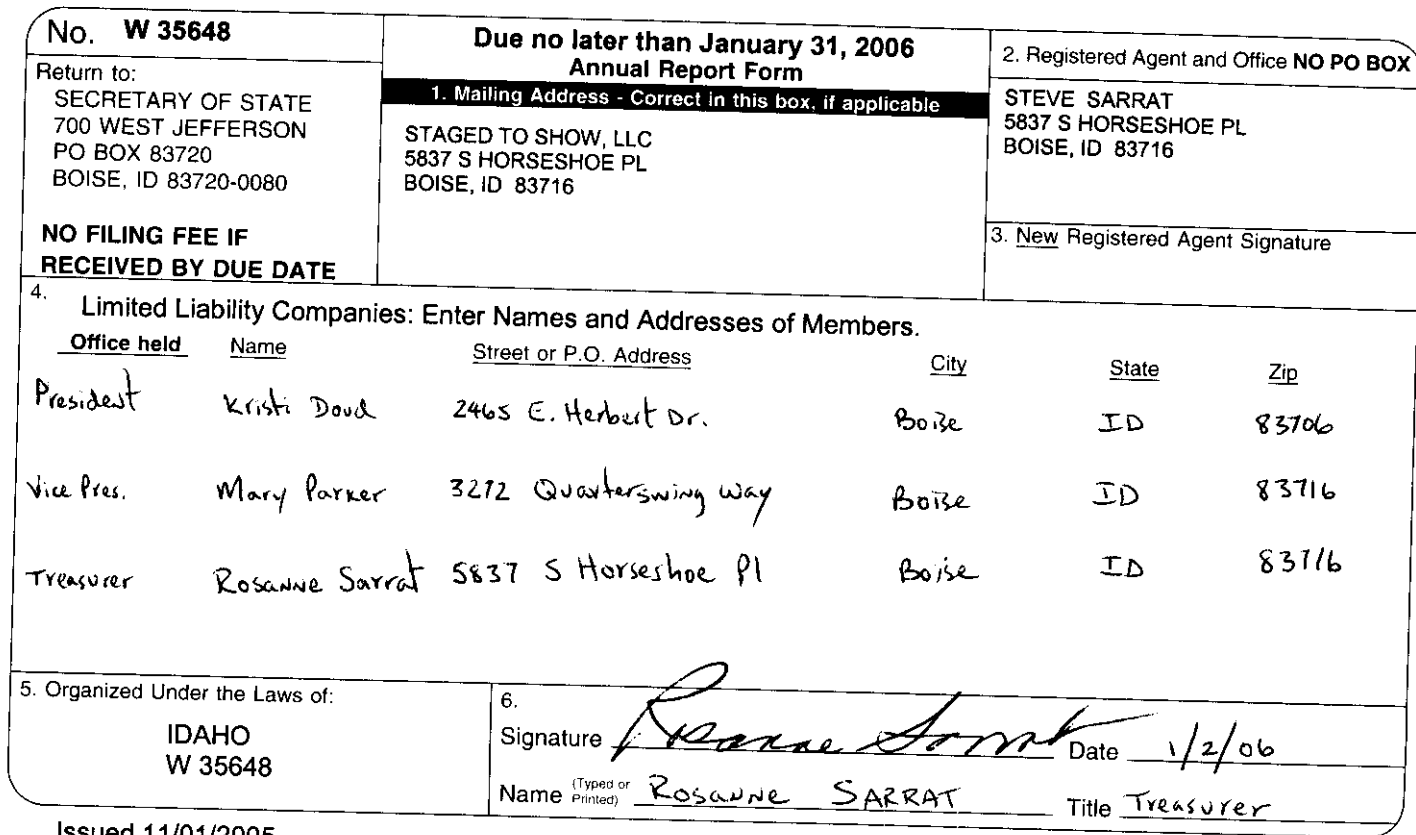 No. W 35648
Return to:
SECRETARY OF STATE
700 WEST JEFFERSON
PO BOX 83720
BOISE, ID 83720-0080
NO FILING FEE IF
RECEIVED BY DUE DATE
Due no later than January 31, 2006
Annual Report Form
1. Mailing Address - Correct in this box, if applicable
STAGED TO SHOW, LLC
5837 S HORSESHOE PL
BOISE, ID 83716
2. Registered Agent and Office NO PO BOX
STEVE SARRAT
5837 S HORSESHOE PL
BOISE, ID 83716
3. New Registered Agent Signature
4. Limited Liability Companies: Enter Names and Addresses of Members.
Office held Name Street or P.O. Address City State Zip
President Kristi Doud 2465 E. Herbert Dr. Boise ID 83706
Vice Pres. Mary Parker 3272 Quarterswing Way Boise ID 83716
Treasurer Rosanne Sarrat 5837 S Horseshoe Pl Boise ID 83716
5. Organized Under the Laws of:
IDAHO
W 35648
6.
Signature Rosanne Sarrat Date 1/2/06
Name (Typed or Printed) Rosanne SARRAT Title Treasurer
Issued 11/01/2005